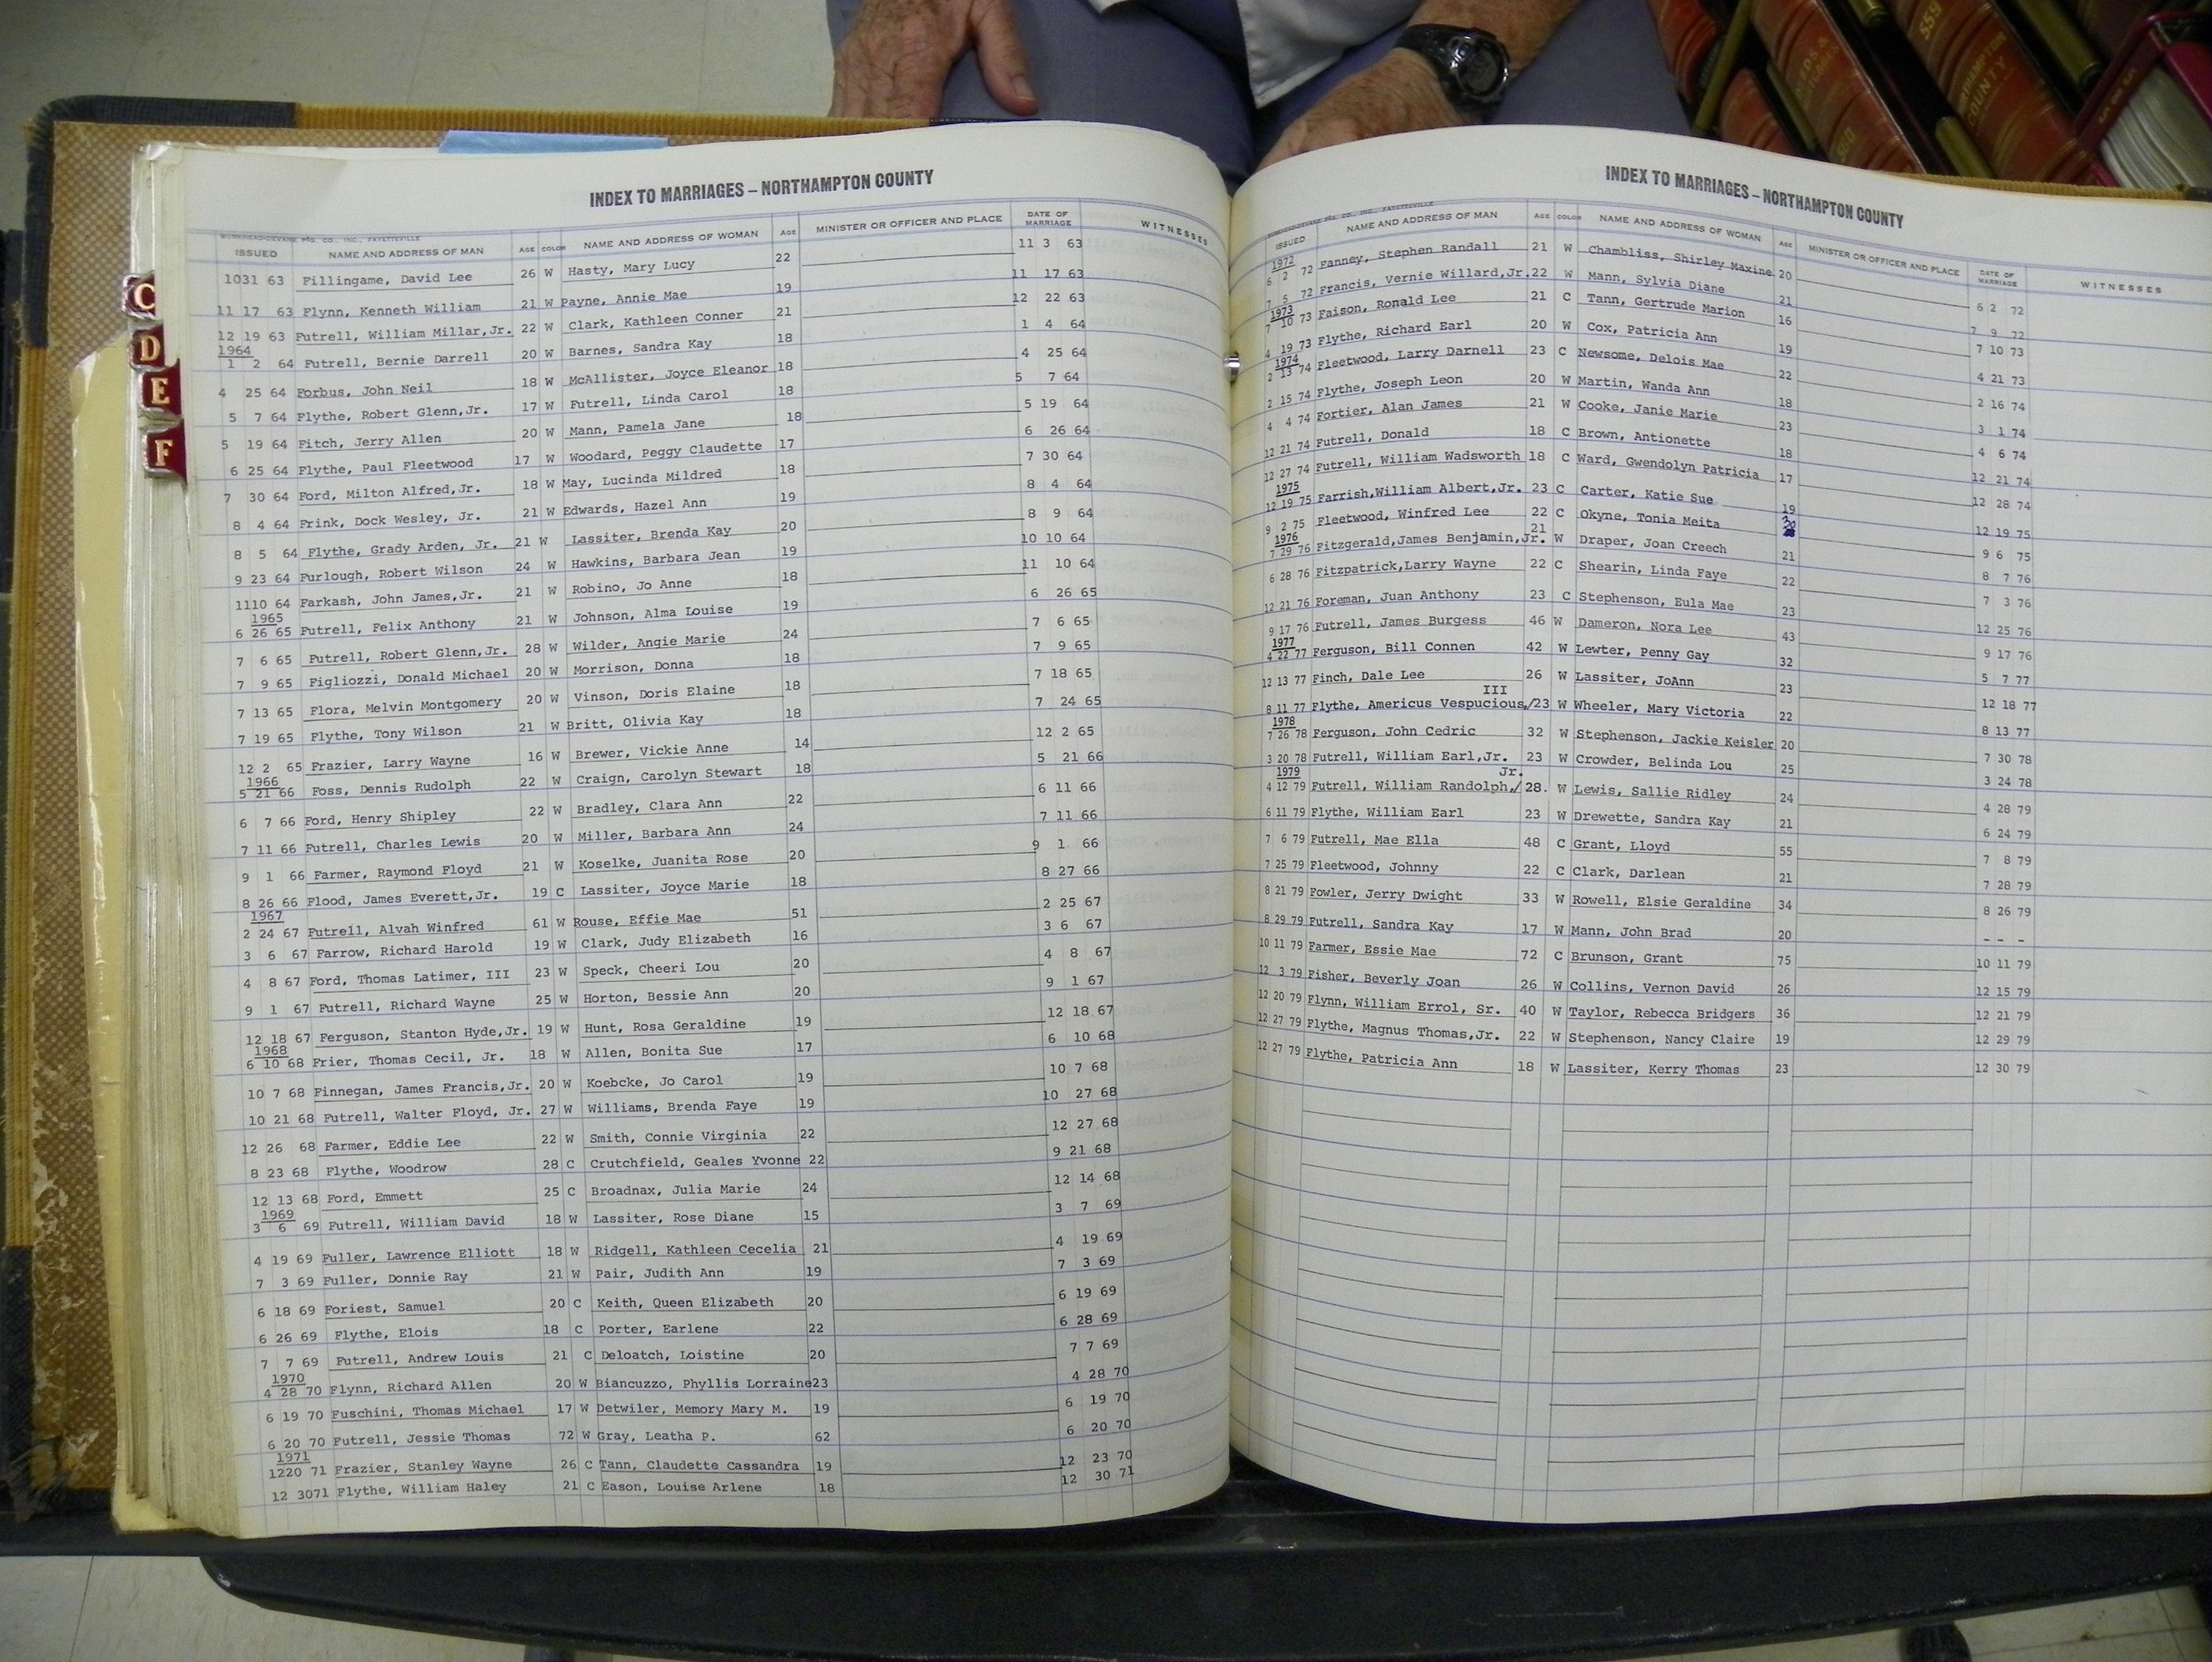 INDEX TO MARRIAGES – NORTHAMPTON COUNTY
BURKHEAD-DEVANE PTG. CO., INC., FAYETTEVILLE
ISSUED NAME AND ADDRESS OF MAN AGE COLOR NAME AND ADDRESS OF WOMAN AGE MINISTER OR OFFICER AND PLACE DATE OF MARRIAGE WITNESSES
1031 63 Fillingame, David Lee 26 W Hasty, Mary Lucy 22 11 3 63
11 17 63 Flynn, Kenneth William 21 W Payne, Annie Mae 19 11 17 63
12 19 63 Futrell, William Millar,Jr. 22 W Clark, Kathleen Conner 21 12 22 63
1964
1 2 64 Futrell, Bernie Darrell 20 W Barnes, Sandra Kay 18 1 4 64
4 25 64 Forbus, John Neil 18 W McAllister, Joyce Eleanor 18 4 25 64
5 7 64 Flythe, Robert Glenn,Jr. 17 W Futrell, Linda Carol 18 5 7 64
5 19 64 Fitch, Jerry Allen 20 W Mann, Pamela Jane 18 5 19 64
6 25 64 Flythe, Paul Fleetwood 17 W Woodard, Peggy Claudette 17 6 26 64
7 30 64 Ford, Milton Alfred,Jr. 18 W May, Lucinda Mildred 18 7 30 64
8 4 64 Frink, Dock Wesley, Jr. 21 W Edwards, Hazel Ann 19 8 4 64
8 5 64 Flythe, Grady Arden, Jr. 21 W Lassiter, Brenda Kay 20 8 9 64
9 23 64 Furlough, Robert Wilson 24 W Hawkins, Barbara Jean 19 10 10 64
1110 64 Farkash, John James,Jr. 21 W Robino, Jo Anne 18 11 10 64
1965
6 26 65 Futrell, Felix Anthony 21 W Johnson, Alma Louise 19 6 26 65
7 6 65 Futrell, Robert Glenn,Jr. 28 W Wilder, Angie Marie 24 7 6 65
7 9 65 Figliozzi, Donald Michael 20 W Morrison, Donna 18 7 9 65
7 13 65 Flora, Melvin Montgomery 20 W Vinson, Doris Elaine 18 7 18 65
7 19 65 Flythe, Tony Wilson 21 W Britt, Olivia Kay 18 7 24 65
12 2 65 Frazier, Larry Wayne 16 W Brewer, Vickie Anne 14 12 2 65
1966
5 21 66 Foss, Dennis Rudolph 22 W Craign, Carolyn Stewart 18 5 21 66
6 7 66 Ford, Henry Shipley 22 W Bradley, Clara Ann 22 6 11 66
7 11 66 Futrell, Charles Lewis 20 W Miller, Barbara Ann 24 7 11 66
9 1 66 Farmer, Raymond Floyd 21 W Koselke, Juanita Rose 20 9 1 66
8 26 66 Flood, James Everett,Jr. 19 C Lassiter, Joyce Marie 18 8 27 66
1967
2 24 67 Futrell, Alvah Winfred 61 W Rouse, Effie Mae 51 2 25 67
3 6 67 Farrow, Richard Harold 19 W Clark, Judy Elizabeth 16 3 6 67
4 8 67 Ford, Thomas Latimer, III 23 W Speck, Cheeri Lou 20 4 8 67
9 1 67 Futrell, Richard Wayne 25 W Horton, Bessie Ann 20 9 1 67
12 18 67 Ferguson, Stanton Hyde,Jr. 19 W Hunt, Rosa Geraldine 19 12 18 67
1968
6 10 68 Frier, Thomas Cecil, Jr. 18 W Allen, Bonita Sue 17 6 10 68
10 7 68 Finnegan, James Francis,Jr. 20 W Koebcke, Jo Carol 19 10 7 68
10 21 68 Futrell, Walter Floyd, Jr. 27 W Williams, Brenda Faye 19 10 27 68
12 26 68 Farmer, Eddie Lee 22 W Smith, Connie Virginia 22 12 27 68
8 23 68 Flythe, Woodrow 28 C Crutchfield, Geales Yvonne 22 9 21 68
12 13 68 Ford, Emmett 25 C Broadnax, Julia Marie 24 12 14 68
1969
3 6 69 Futrell, William David 18 W Lassiter, Rose Diane 15 3 7 69
4 19 69 Fuller, Lawrence Elliott 18 W Ridgell, Kathleen Cecelia 21 4 19 69
7 3 69 Fuller, Donnie Ray 21 W Pair, Judith Ann 19 7 3 69
6 18 69 Foriest, Samuel 20 C Keith, Queen Elizabeth 20 6 19 69
6 26 69 Flythe, Elois 18 C Porter, Earlene 22 6 28 69
7 7 69 Futrell, Andrew Louis 21 C Deloatch, Loistine 20 7 7 69
1970
4 28 70 Flynn, Richard Allen 20 W Biancuzzo, Phyllis Lorraine 23 4 28 70
6 19 70 Fuschini, Thomas Michael 17 W Detwiler, Memory Mary M. 19 6 19 70
6 20 70 Futrell, Jessie Thomas 72 W Gray, Leatha P. 62 6 20 70
1971
1220 71 Frazier, Stanley Wayne 26 C Tann, Claudette Cassandra 19 12 23 70
12 3071 Flythe, William Haley 21 C Eason, Louise Arlene 18 12 30 71
C
D
E
F
INDEX TO MARRIAGES – NORTHAMPTON COUNTY
ISSUED NAME AND ADDRESS OF MAN AGE COLOR NAME AND ADDRESS OF WOMAN AGE MINISTER OR OFFICER AND PLACE DATE OF MARRIAGE WITNESSES
1972
6 2 72 Fanney, Stephen Randall 21 W Chambliss, Shirley Maxine 20 6 2 72
7 5 72 Francis, Vernie Willard,Jr. 22 W Mann, Sylvia Diane 21 7 9 72
1973
7 10 73 Faison, Ronald Lee 21 C Tann, Gertrude Marion 16 7 10 73
4 19 73 Flythe, Richard Earl 20 W Cox, Patricia Ann 19 4 21 73
1974
2 13 74 Fleetwood, Larry Darnell 23 C Newsome, Delois Mae 22 2 16 74
2 15 74 Flythe, Joseph Leon 20 W Martin, Wanda Ann 18 3 1 74
4 4 74 Fortier, Alan James 21 W Cooke, Janie Marie 23 4 6 74
12 21 74 Futrell, Donald 18 C Brown, Antionette 18 12 21 74
12 27 74 Futrell, William Wadsworth 18 C Ward, Gwendolyn Patricia 17 12 28 74
1975
12 19 75 Farrish,William Albert,Jr. 23 C Carter, Katie Sue 19 12 19 75
9 2 75 Fleetwood, Winfred Lee 22 C Okyne, Tonia Meita 9 6 75
1976
7 29 76 Fitzgerald,James Benjamin,Jr. 21 W Draper, Joan Creech 21 8 7 76
6 28 76 Fitzpatrick,Larry Wayne 22 C Shearin, Linda Faye 22 7 3 76
12 21 76 Foreman, Juan Anthony 23 C Stephenson, Eula Mae 23 12 25 76
9 17 76 Futrell, James Burgess 46 W Dameron, Nora Lee 43 9 17 76
1977
4 22 77 Ferguson, Bill Connen 42 W Lewter, Penny Gay 32 5 7 77
12 13 77 Finch, Dale Lee 26 W Lassiter, JoAnn 23 12 18 77
III
8 11 77 Flythe, Americus Vespucious,/23 W Wheeler, Mary Victoria 22 8 13 77
1978
7 26 78 Ferguson, John Cedric 32 W Stephenson, Jackie Keisler 20 7 30 78
3 20 78 Futrell, William Earl,Jr. 23 W Crowder, Belinda Lou 25 3 24 78
1979 Jr.
4 12 79 Futrell, William Randolph,/ 28. W Lewis, Sallie Ridley 24 4 28 79
6 11 79 Flythe, William Earl 23 W Drewette, Sandra Kay 21 6 24 79
7 6 79 Futrell, Mae Ella 48 C Grant, Lloyd 55 7 8 79
7 25 79 Fleetwood, Johnny 22 C Clark, Darlean 21 7 28 79
8 21 79 Fowler, Jerry Dwight 33 W Rowell, Elsie Geraldine 34 8 26 79
8 29 79 Futrell, Sandra Kay 17 W Mann, John Brad 20 - - -
10 11 79 Farmer, Essie Mae 72 C Brunson, Grant 75 10 11 79
12 3 79 Fisher, Beverly Joan 26 W Collins, Vernon David 26 12 15 79
12 20 79 Flynn, William Errol, Sr. 40 W Taylor, Rebecca Bridgers 36 12 21 79
12 27 79 Flythe, Magnus Thomas,Jr. 22 W Stephenson, Nancy Claire 19 12 29 79
12 27 79 Flythe, Patricia Ann 18 W Lassiter, Kerry Thomas 23 12 30 79
559
COUNTY